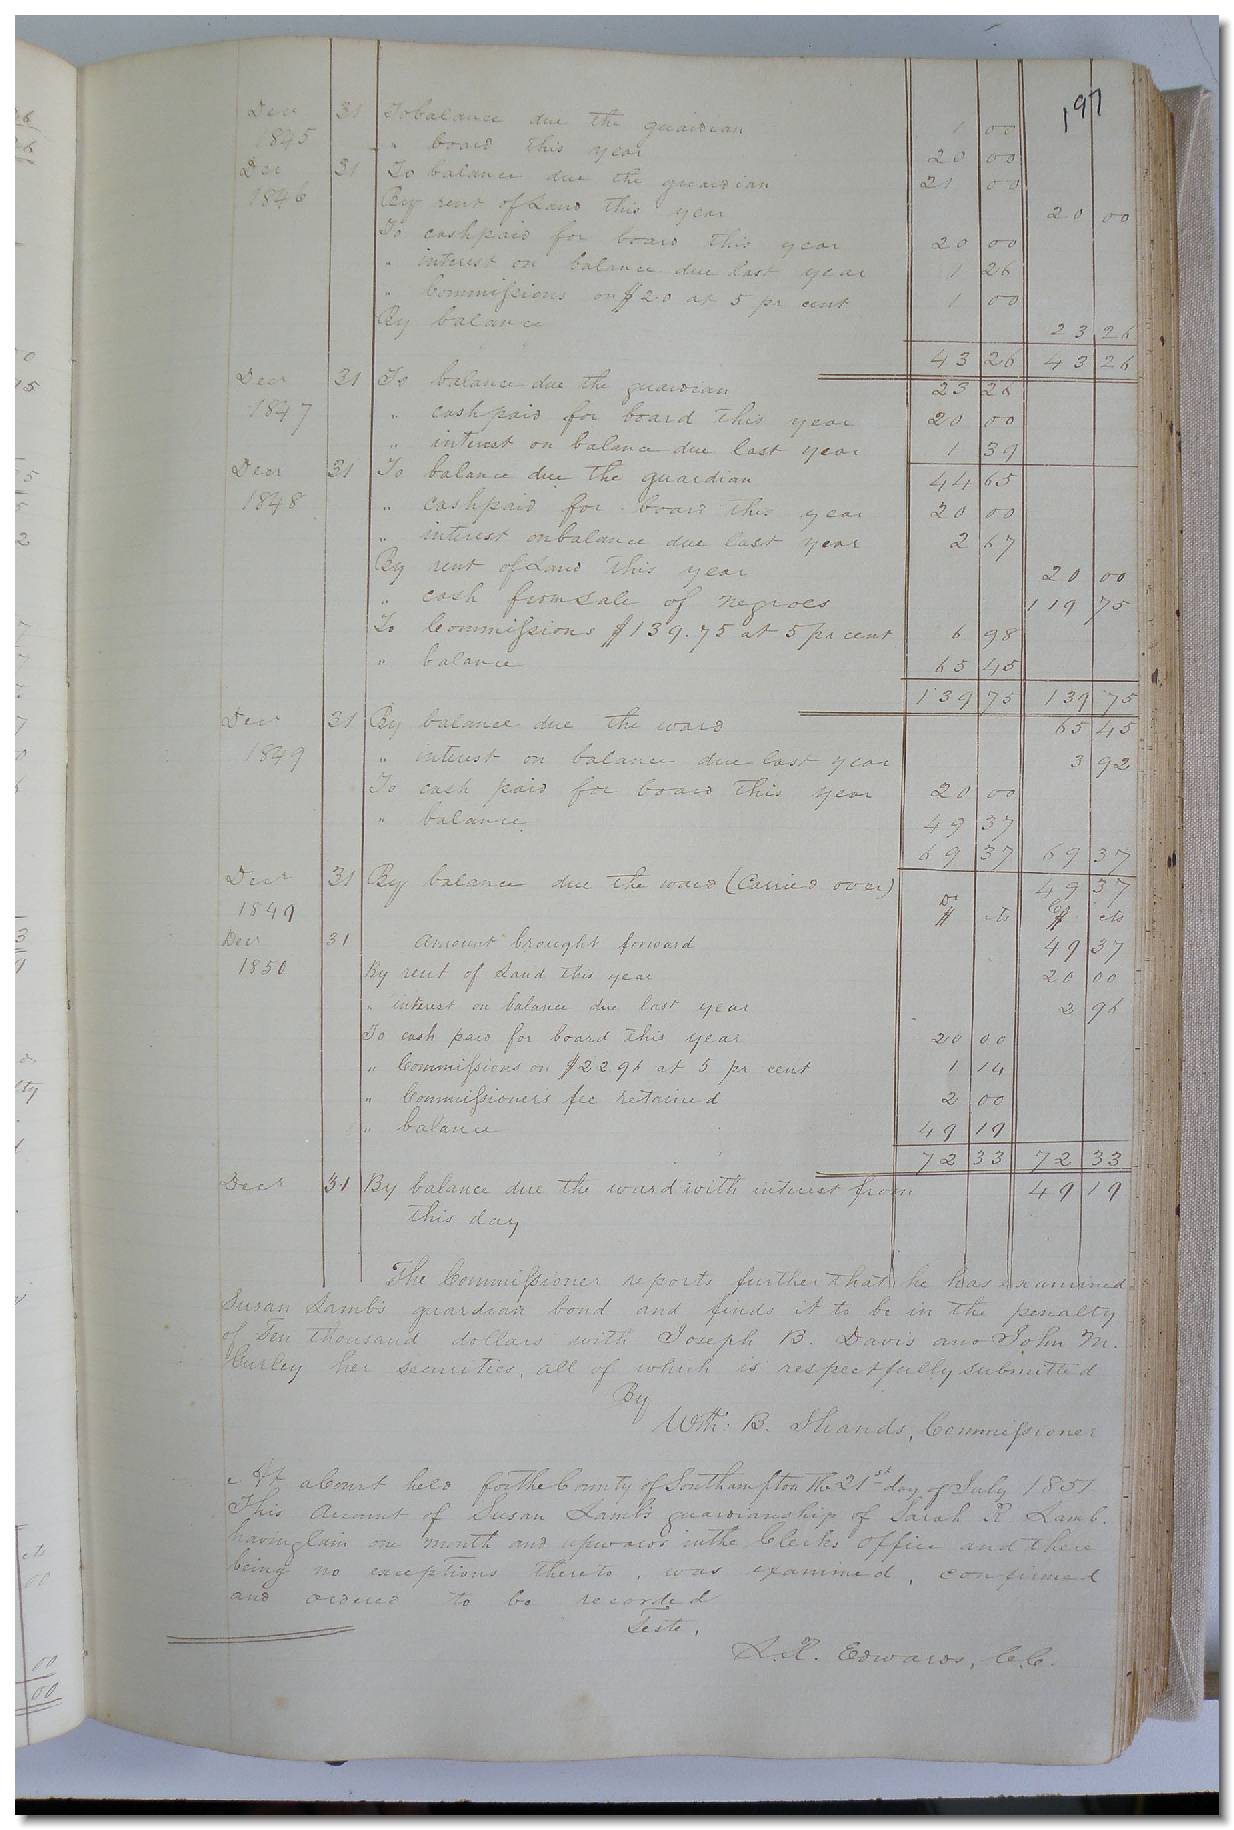 197
Decr 31 To balance due the guardian 1 00
1845 " board this year 20 00
Decr 31 To balance due the guardian 21 00
1846 By rent of Land this year 20 00
To cash paid for board this year 20 00
" interest on balance due last year 1 26
" Commissions on $20 at 5 pr cent 1 00
By balance 23 26
43 26 43 26
Decr 31 To balance due the guardian 23 26
1847 " cash paid for board this year 20 00
" interest on balance due last year 1 39
Decr 31 To balance due the guardian 44 65
1848 " cash paid for board this year 20 00
" interest on balance due last year 2 67
By rent of Land this year 20 00
" cash from sale of negroes 119 75
To Commissions $139.75 at 5 pr cent 6 98
" balance 65 45
139 75 139 75
Decr 31 By balance due the ward 65 45
1849 " interest on balance due last year 3 92
To cash paid for board this year 20 00
" balance 49 37
69 37 69 37
Decr 31 By balance due the ward (Carried over) 49 37
1849 Dr $ cts Cr $ cts
Decr 31 Amount brought forward 49 37
1850 By rent of Land this year 20 00
" interest on balance due last year 2 96
To cash paid for board this year 20 00
" Commissions on $22 96 at 5 pr cent 1 14
" Commissioner's fee retained 2 00
" balance 49 19
72 33 72 33
Decr 31 By balance due the ward with interest from 49 19
this day
The Commissioner reports further that he has examined
Susan Lamb's guardian bond and finds it to be in the penalty
of Ten thousand dollars with Joseph B. Davis and John M.
Gurley her securities, all of which is respectfully submitted
By
Wth. B. Shands, Commissioner
At a Court held for the County of Southampton the 21st day of July 1851
This Account of Susan Lamb's guardianship of Sarah R Lamb.
having lain one month and upwards in the Clerks office and there
being no exceptions thereto, was examined, confirmed
and ordered to be recorded
Teste,
L.R. Edwards, C.C.